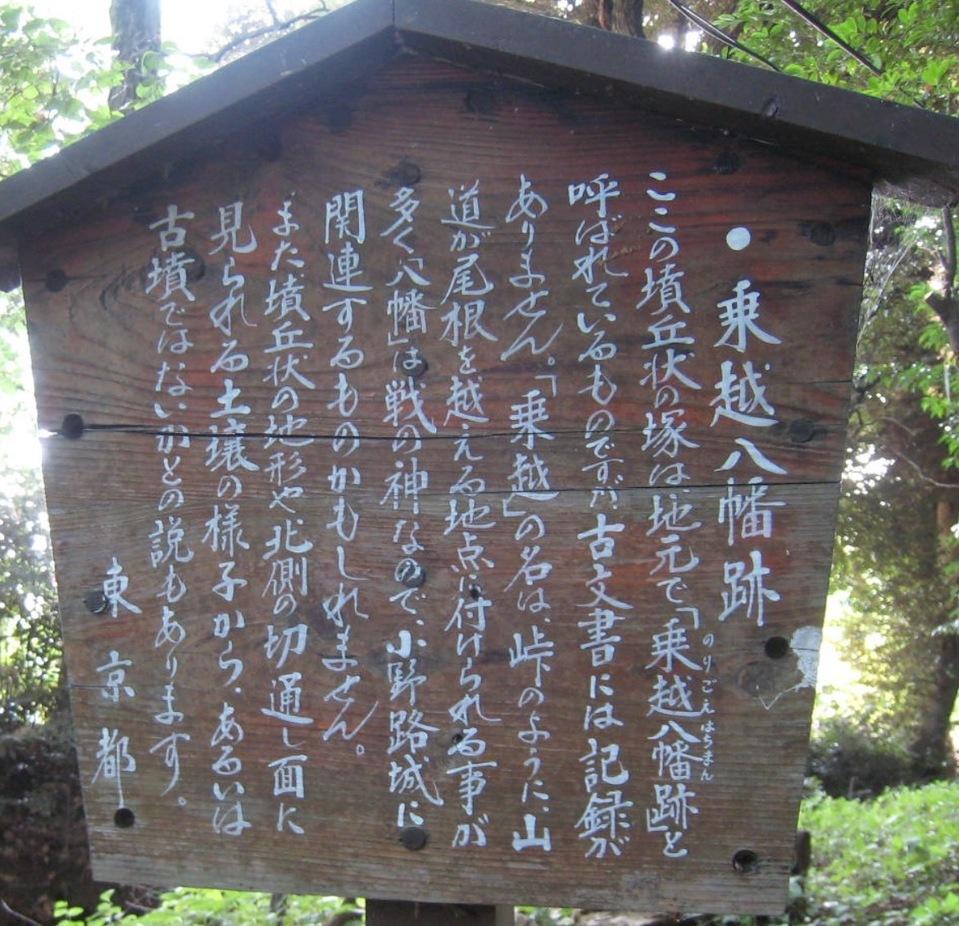 ●乗越八幡跡
ここの墳丘状の塚は、地元で「乗越八幡跡」と
のりごえはちまん
呼ばれているものですが古文書には記録が
ありません。「乗越」の名は、峠のように、山
道が尾根を越える地点に付けられる事が
多く「八幡」は戦の神なので、小野路城に
関連するものかもしれません。
また墳丘状の地形や北側の切通し面に
見られる土壌の様子から、あるいは
古墳ではないかとの説もあります。
東京都